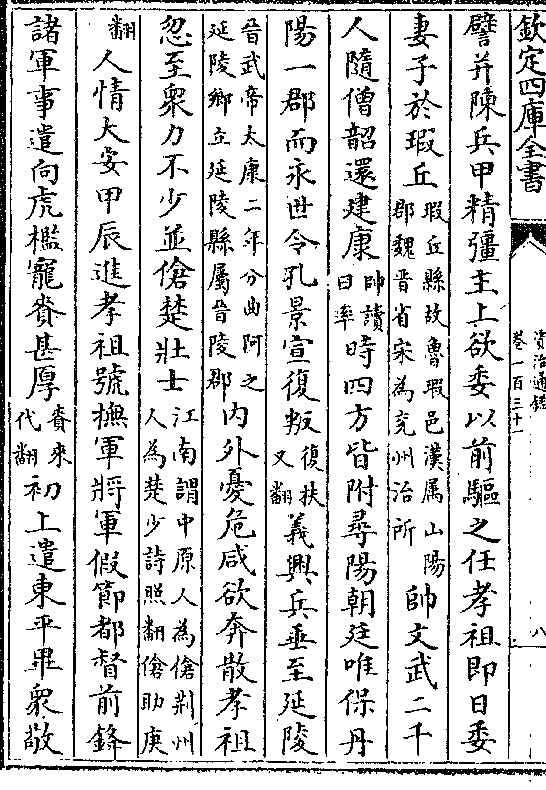 欽定四庫全書
資治通鑑
卷一百三十一
八
譬并陳兵甲精彊主上欲委以前驅之任孝祖即日委
妻子於瑕丘瑕丘縣故魯瑕邑漢屬山陽郡魏晉省宋為兖州治所帥文武二千
人隨僧韶還建康帥讀曰率時四方皆附尋陽朝廷唯保丹
陽一郡而永世令孔景宣復叛復扶又翻義興兵垂至延陵
晉武帝太康二年分曲阿之延陵鄉立延陵縣屬晉陵郡内外憂危咸欲奔散孝祖
忽至衆力不少並傖楚壯士江南謂中原人為傖荆州人為楚少詩照翻傖助庚
翻人情大安甲辰進孝祖號撫軍將軍假節都督前鋒
諸軍事遣向虎檻寵賚甚厚賚來代翻初上遣東平畢衆敬